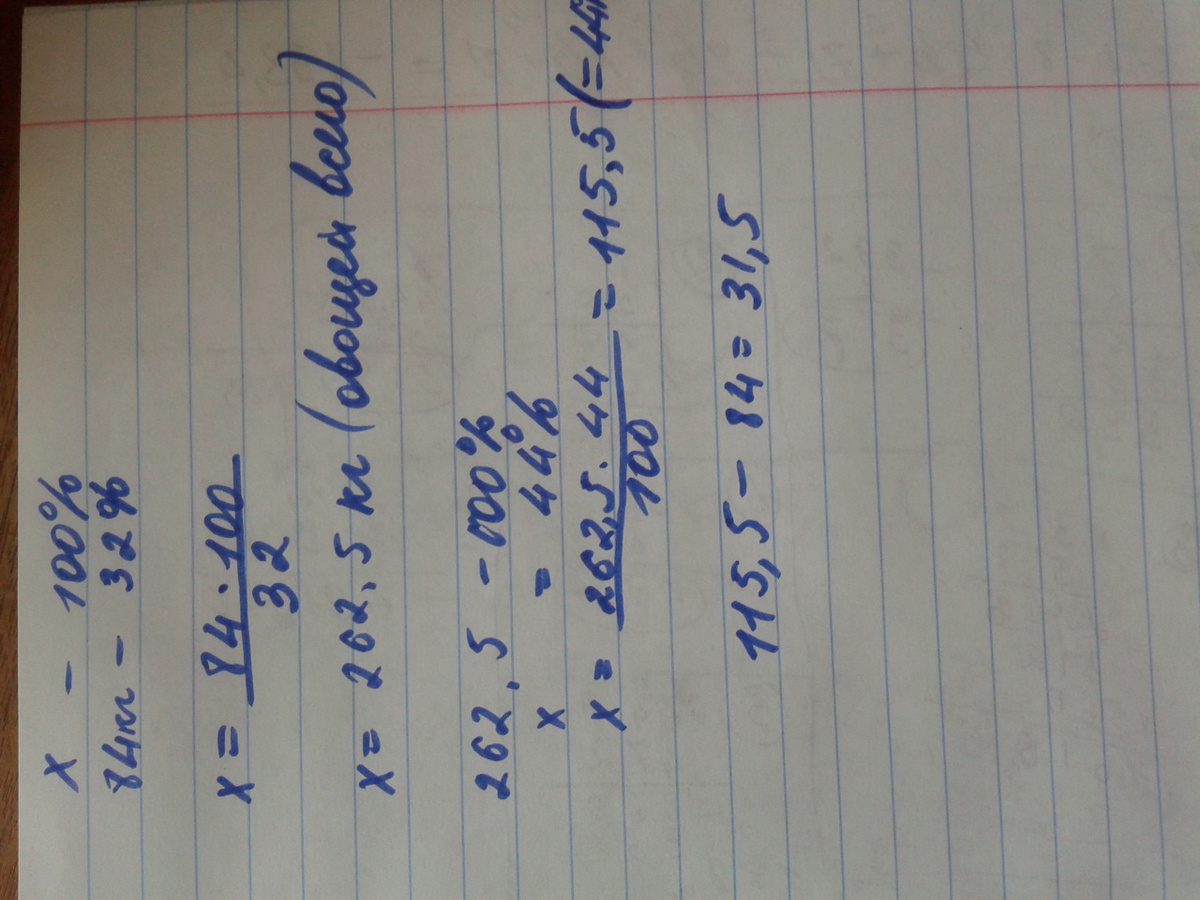 x - 100%
84кг - 32%
x = 84 · 100
32
x = 262,5 кг (овощей всего)
262,5 - 100%
x = 44%
x = 262,5 · 44 = 115,5 (=44
100
115,5 - 84 = 31,5